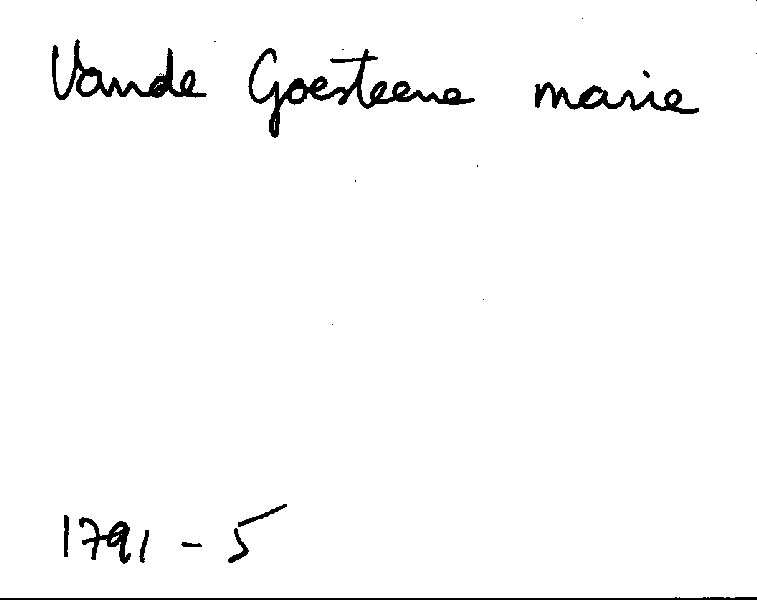 Vande Goesteene marie
1791 - 5